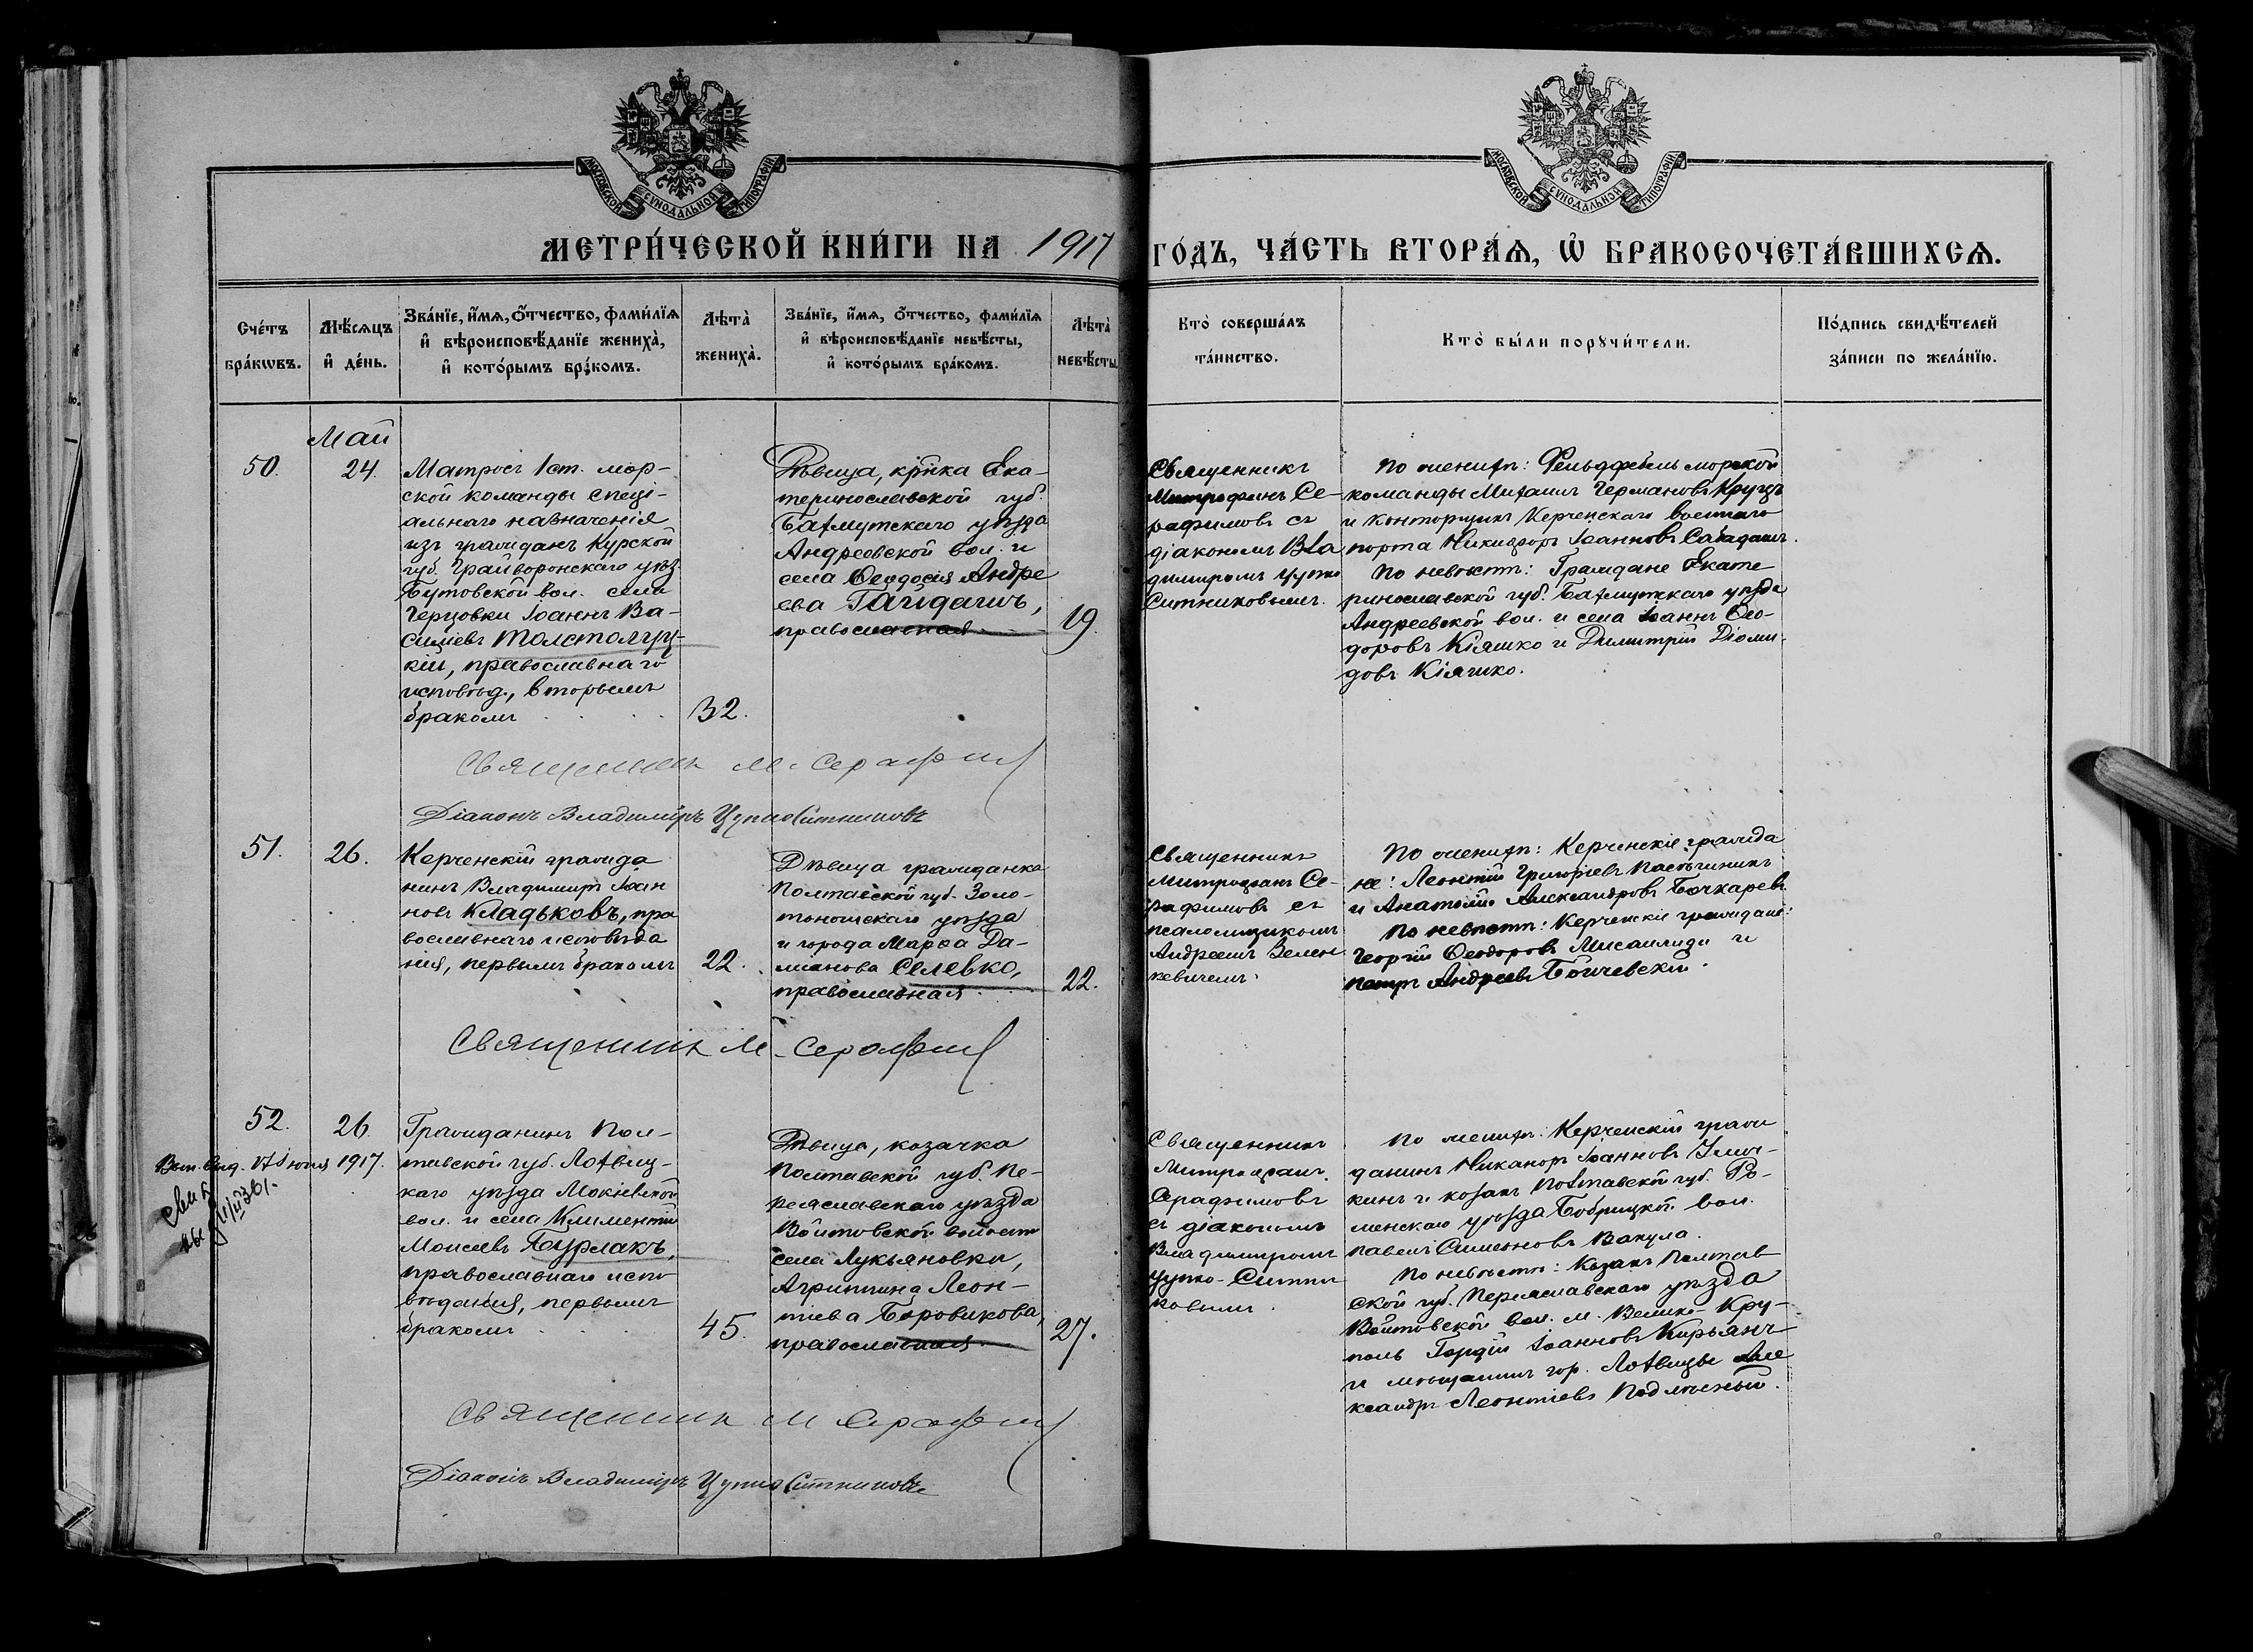 МОСКОВСКОЙ СѴНОДАЛЬНОЙ ТИПОГРАФІИ
МОСКОВСКОЙ СѴНОДАЛЬНОЙ ТИПОГРАФІИ
МЕТРИ́ЧЕСКОЙ КНИ́ГИ НА 1917
ГО́ДЪ, ЧА́СТЬ ВТОРА́Ѧ, Ѡ҆ БРАКОСОЧЕТА́ВШИХСѦ.
Сче́тъ
бра́кѡвъ.
Мѣ́сѧцъ
и҆ де́нь.
Зва́нїе, и҆́мѧ, ѻ҆́тчество, фами́лїѧ
и҆ вѣроисповѣ́данїе жениха̀,
и҆ кото́рымъ бра́комъ.
Лѣта̀
жениха̀.
Зва́нїе, и҆́мѧ, ѻ҆́тчество, фами́лїѧ
и҆ вѣроисповѣ́данїе невѣ́сты,
и҆ кото́рымъ бра́комъ.
Лѣта̀
невѣ́сты.
Кто̀ соверша́лъ
та́инство.
Кто̀ бы́ли порꙋчи́тели.
По́дпись свидѣ́телей
за́писи по жела́нїю.
Май
50.
24.
Матросъ 1 ст. мор-
ской команды спеці-
альнаго назначенія
изъ гражданъ Курской
губ. Грайворонскаго уѣз.
Бутовской вол. села
Черцовки Іоаннъ Ва-
сильевъ Толстолуц-
кій, православнаго
исповѣд., вторымъ
бракомъ
32.
Дѣвица, кр-нка Ека-
теринославской губ.
Бахмутскаго уѣзда
Андреевской вол. и
села Ѳеодосія Андре
ева Гайдашъ,
православная
19.
Священникъ
Митрофанъ Се-
рафимовъ съ
діакономъ Вла
димиромъ Цупко
Ситниковымъ.
По женихѣ: Фельдфебель морской
команды Михаилъ Германовъ Круцъ
и конторщикъ Керченскаго военнаго
порта Никифоръ Іоанновъ
По невѣстѣ: Граждане Екате
ринославской губ. Бахмутскаго уѣзда
Андреевской вол. и села Іоаннъ Ѳео-
доровъ Кіяшко и Димитрій Діоми-
довъ Кіяшко.
Священникъ М. Серафим
Діаконъ Владиміръ Цупко Ситниковъ
51.
26.
Керченскій гражда
нинъ Владимиръ Іоан
новъ Кладьковъ, пра
вославнаго исповѣда
нія, первымъ бракомъ
22.
Дѣвица гражданка
Полтавской губ. Золо-
тоношскаго уѣзда
и города Марѳа Да-
міанова Селевко,
православная
22.
Священникъ
Митрофанъ Се-
рафимовъ съ
псаломщикомъ
Андреемъ Зелен
кевичемъ.
По женихѣ: Керченскіе гражда
не: Леонтій Григорьевъ Пасѣчникъ
и Анатолій Александровъ Бочкаревъ
По невѣстѣ: Керченскіе граждане:
Георгій Ѳеодоровъ Мисаилиди и
Петръ Андреевъ Бойчевскій.
Священникъ М. Серафим
52.
26.
Вып. выд. 17 Іюня 1917.
Гражданинъ Пол-
тавской губ. Лохвиц-
каго уѣзда Мокіевской
вол. и села Климентій
Моисеевъ Бурлакъ,
православнаго испо
вѣданія, первымъ
бракомъ
45.
Дѣвица, козачка
Полтавской губ. Пе-
реяславскаго уѣзда
Войтовской волости
села Лукьяновки,
Агриппина Леон-
тіева Боровикова,
православная
27.
Священникъ
Митрофанъ
Серафимовъ
съ діакономъ
Владимиромъ
Цупко-Ситни
ковымъ.
По женихѣ: Керченскій граж
данинъ Никаноръ Іоанновъ
кинъ и козакъ Полтавской губ. Ро-
менскаго уѣзда Бобрицкой вол.
Павелъ Симеоновъ Вакула.
По невѣстѣ: Козакъ Полтав
ской губ. Переяславскаго уѣзда
Войтовской вол. м. Велико-Кру-
поль Гордій Іоанновъ Кирьянъ
и мѣщанинъ гор. Лохвицы Але
ксандръ Леонтіевъ Подлѣсный.
Священникъ М Серафим
Діаконъ Владиміръ Цупко Ситниковъ